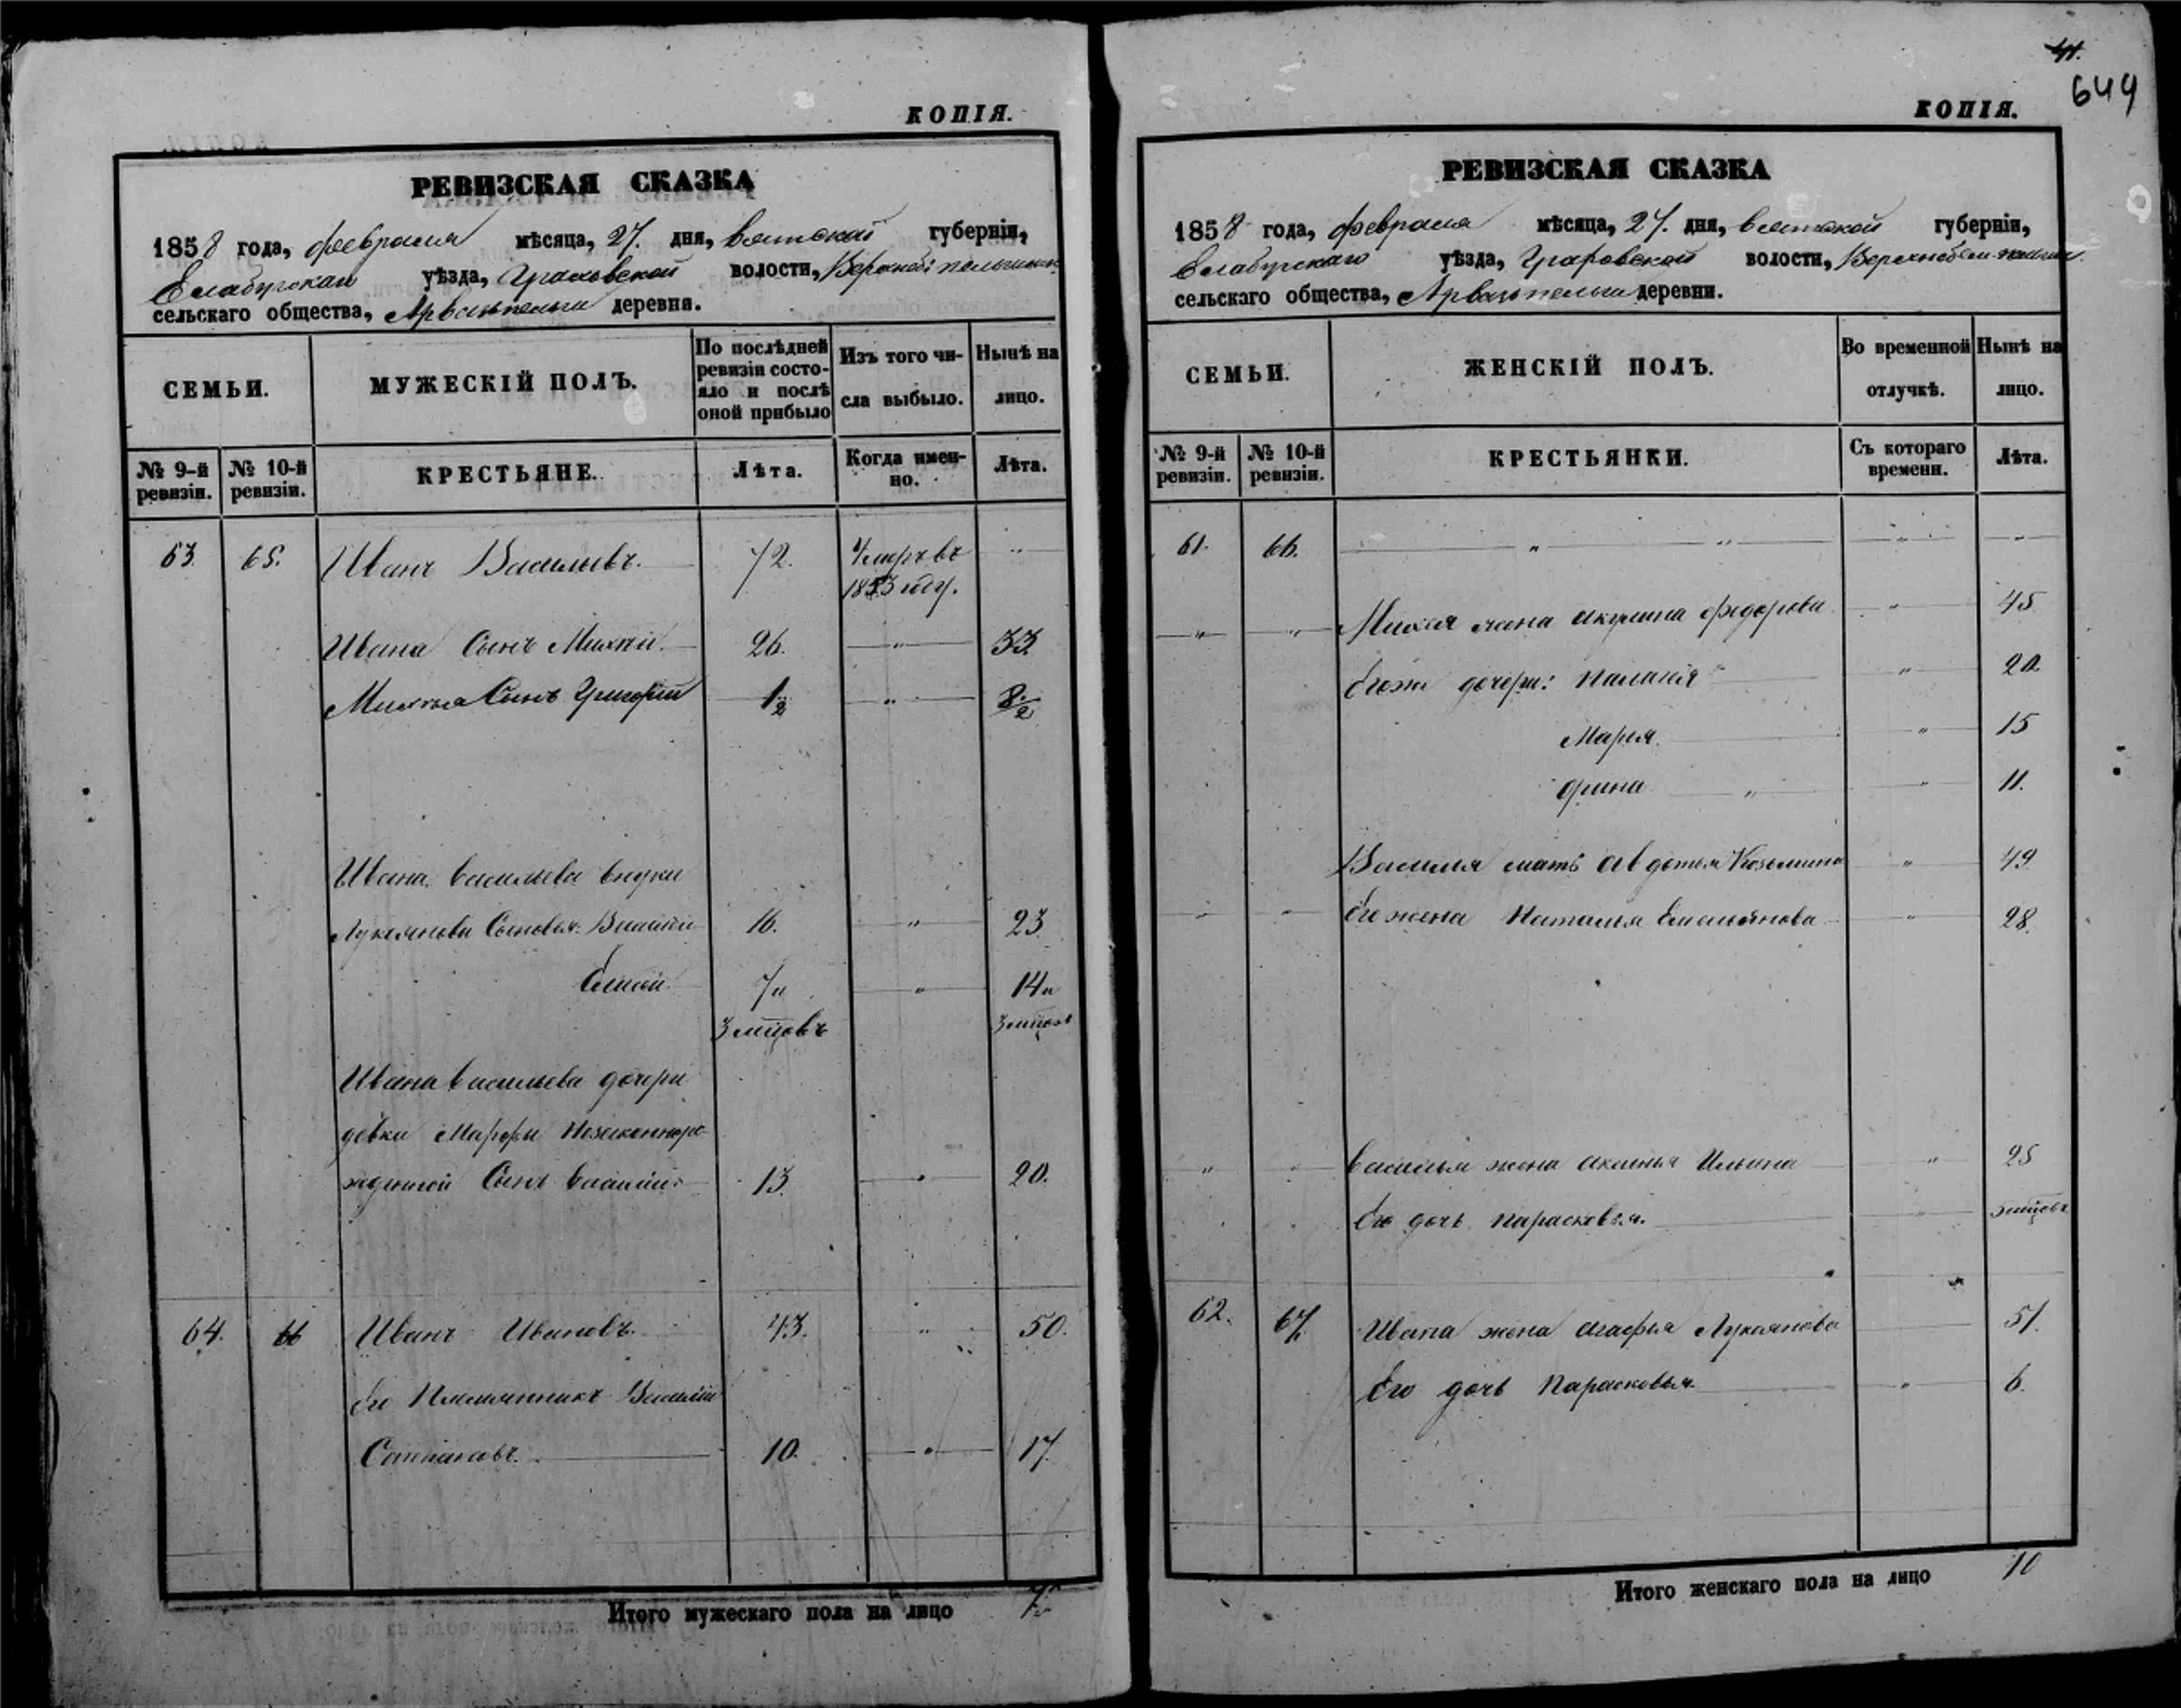 КОПІЯ.
РЕВИЗСКАЯ СКАЗКА
1858 года, февраля мѣсяца, 27. дня, Вятской губерніи,
Елабугскаго уѣзда, Граховской волости,
сельскаго общества, деревни.
СЕМЬИ.
МУЖЕСКІЙ ПОЛЪ.
По послѣдней
ревизіи состо-
яло и послѣ
оной прибыло
Изъ того чи-
сла выбыло.
Нынѣ на
лицо.
№ 9-й
ревизіи.
№ 10-й
ревизіи.
КРЕСТЬЯНЕ.
Лѣта.
Когда имен-
но.
Лѣта.
63. 65. Иванъ Васильевъ. 72. Умеръ въ
1853 году.
Ивана Сынъ Михѣй. 26. " 33.
Михѣя Сынъ Григорій 1/2 " 8/2
Ивана Васильева внуки
Лукоянови Сыновья: Василій 16. " 23
Елисей 7 и " 14 и
3 мѣцовъ 3 мѣцовъ
Ивана Васильева дочери
дѣвки Марфы Незаконноро-
жденной Сынъ Василій 13. " 20.
64. 66 Иванъ Ивановъ. 43. " 50.
Его Племянникъ Василій
Степановъ. 10. " 17.
Итого мужескаго пола на лицо 7
41.
649
КОПІЯ.
РЕВИЗСКАЯ СКАЗКА
1858 года, февраля мѣсяца, 27. дня, Вятской губерніи,
Елабугскаго уѣзда, Граховской волости,
сельскаго общества, деревни.
СЕМЬИ.
ЖЕНСКІЙ ПОЛЪ.
Во временной
отлучкѣ.
Нынѣ на
лицо.
№ 9-й
ревизіи.
№ 10-й
ревизіи.
КРЕСТЬЯНКИ.
Съ котораго
времени.
Лѣта.
61. 66. " " " "
" " Михѣя жена Акулина Федорова " 45
Егожъ дочери: Палагія " 20
Марья. " 15
Орина " " 11.
Василья мать Авдотья Козьмина " 49
" " Его жена Наталья Емельянова " 28.
" " Василья жена Аксинья Ильина " 25
Его дочь Парасковья. "
62. 67. Ивана жена Агафья Лукоянова 51.
Его дочь Парасковья. " 6.
Итого женскаго пола на лицо 10